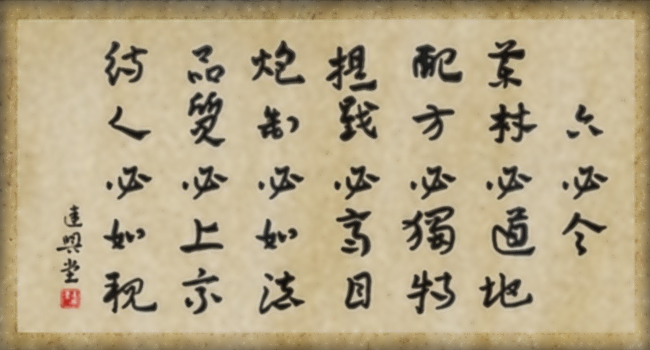 六必令
藥材必道地
配方必獨特
戥必高目
炮制必如法
品質必上
待人必如親
興堂